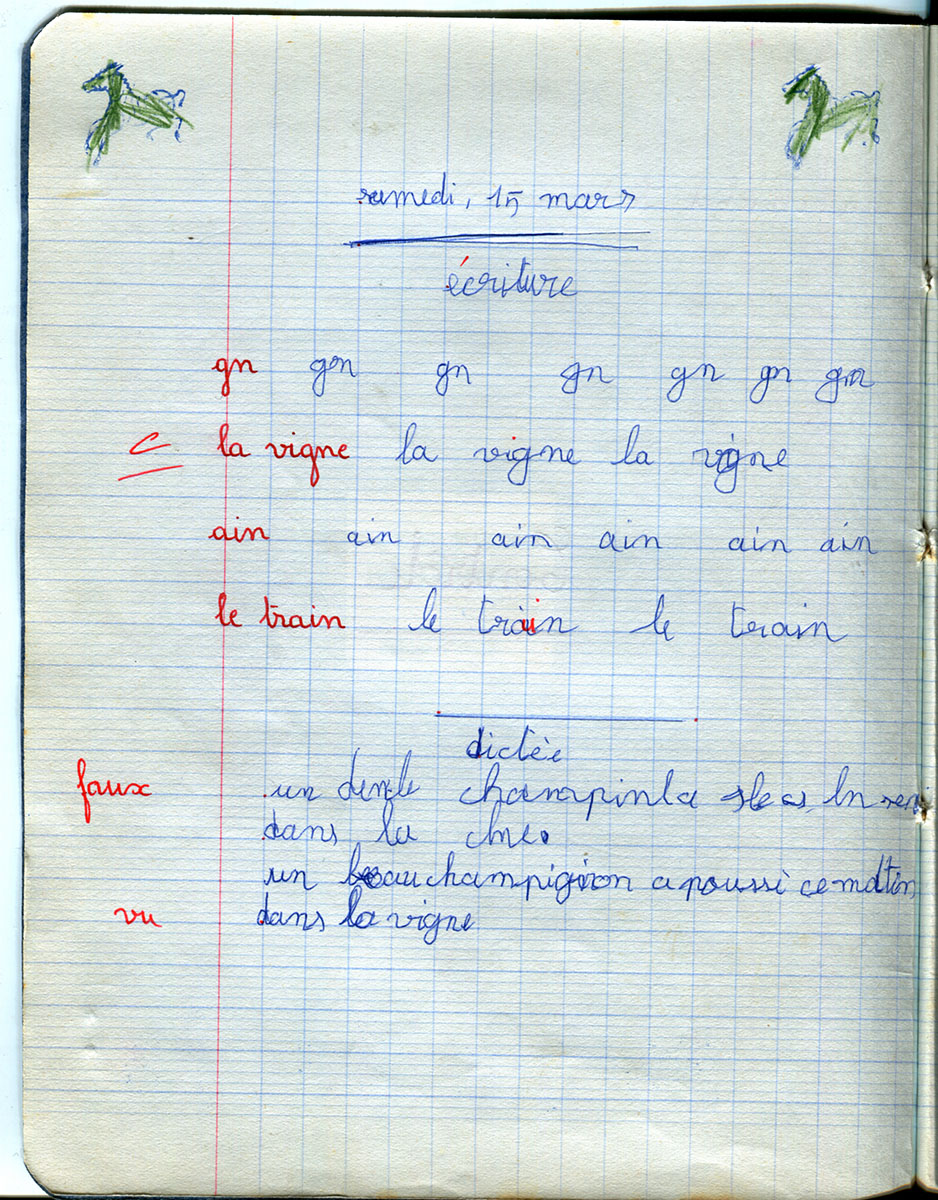 samedi, 15 mars
écriture
gn gn gn gn gn gn gn
C la vigne la vigne la vigne
ain ain ain ain ain ain
le train le train le train
dictée
faux un champinla
dans la che.
un beau champignon a poussé ce matin
vu dans la vigne